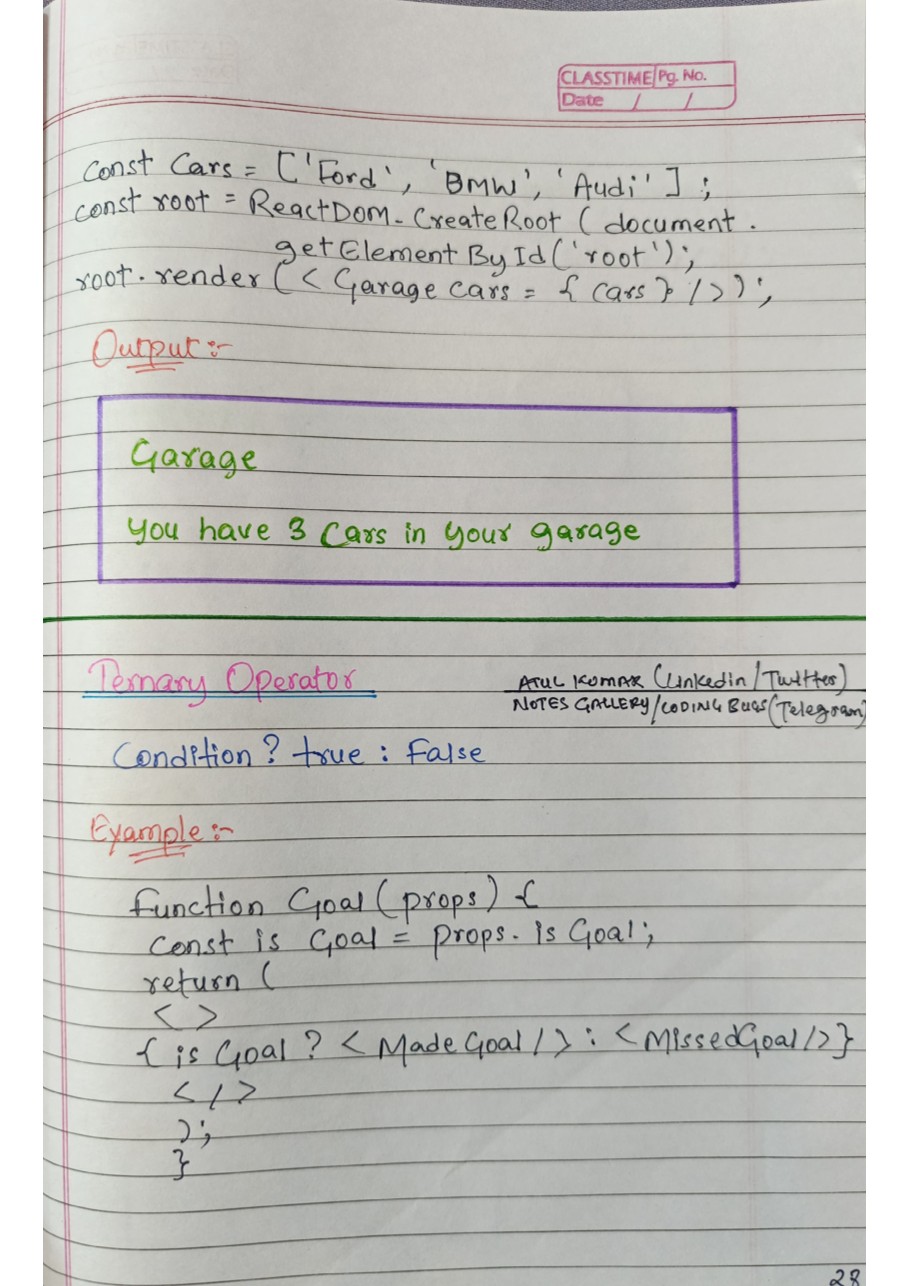 CLASSTIME Pg. No.
Date / /
Const Cars = ['Ford', 'BMW', 'Audi'];
const root = ReactDOM.CreateRoot (document.
getElementById('root');
root.render (<Garage cars = {cars} />);
Output:-
Garage
You have 3 Cars in your garage
Ternary Operator
ATUL KUMAR (Linkedin/Twitter)
NOTES GALLERY/CODING BUGS(Telegram)
Condition ? true : False
Example:-
function Goal (props) {
Const is Goal = props. is Goal;
return (
< >
{ is Goal ? < Made Goal /> : < MissedGoal />}
< / >
);
}
28